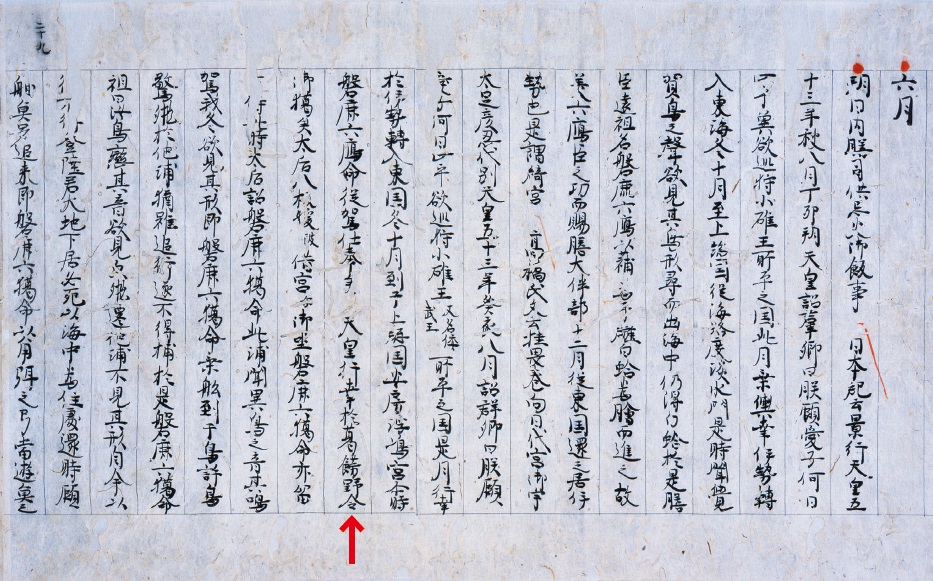 六月
朔日内膳司供忌火御飯事 日本紀云景行天皇五
十三年秋八月丁卯朔天皇詔羣卿曰朕顧愛子何日
止乎冀欲巡狩小碓王所平之国此月乗輿幸伊勢轉
入東海冬十月至上総国従海路渡淡水門是時聞覺
賀鳥之聲欲見其鳥形尋而出海中仍得白蛤於是膳
臣遠祖名磐鹿六鴈以蒲為手繦白蛤為膾而進之故
美六鴈臣之功而賜膳大伴部十二月従東国還之居伊
勢也是謂綺宮 高橋氏文云挂畏巻向日代宮御宇
太足彦忍代別天皇五十三年癸亥八月詔群卿曰朕顧
愛子何日止乎 欲巡狩小碓王又名倭武王所平之国是月行幸
於伊勢轉入東国冬十月到于上総国安房浮嶋宮尒時
磐鹿六鴈命従駕仕奉矣 天皇行幸於葛餝野令
御獦矣太后八坂媛波借宮尒御坐磐鹿六獦命亦留
侍此時太后詔磐鹿六獦命此浦聞異鳥之音其鳴
駕我久欲見其形即磐鹿六獦命乗船到于鳥許鳥
驚飛於他浦猶雖追行遂不得捕於是磐鹿六獦命
曰汝鳥戀其音欲見飛遷他浦不見其形自今以
行登陸若大地下居必死以海中為住處還時顧
舳魚多追来即磐鹿六獦命以角弭之弓當遊魚之